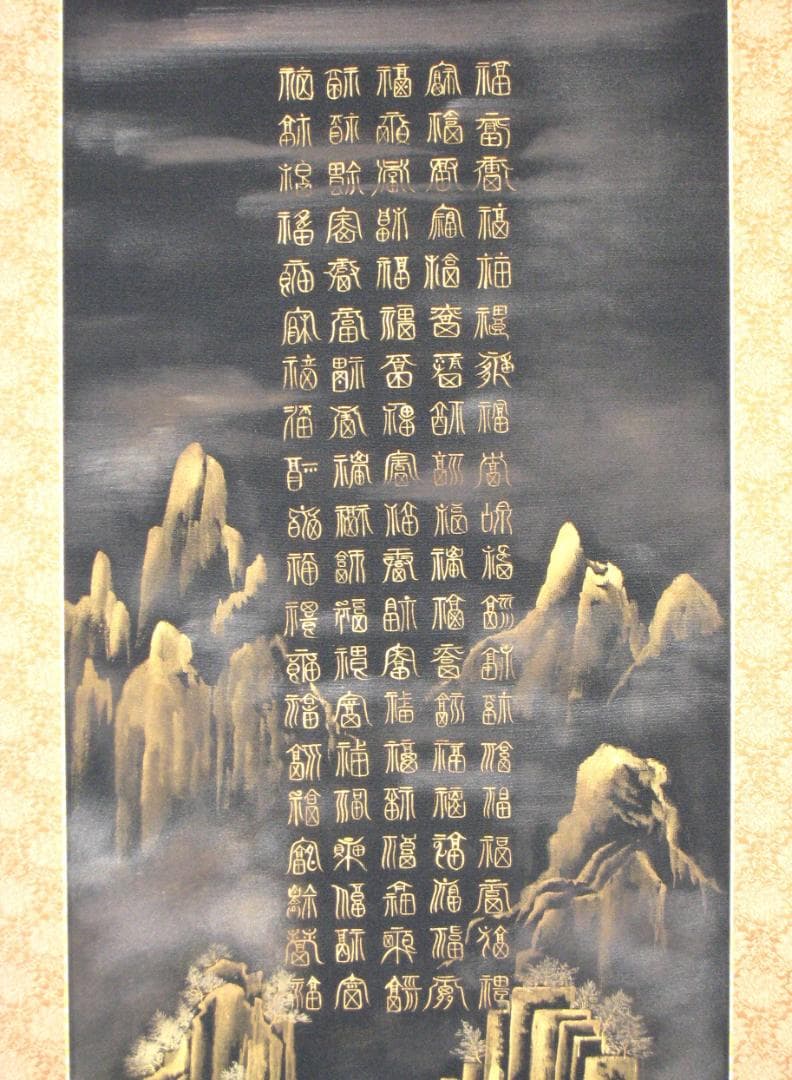 福福福福福福福福福福福福福福福福福福福福
福福福福福福福福福福福福福福福福福福福福
福福福福福福福福福福福福福福福福福福福福
福福福福福福福福福福福福福福福福福福福福
福福福福福福福福福福福福福福福福福福福福